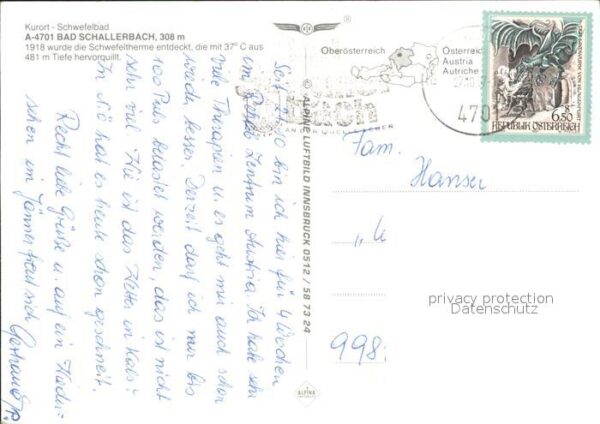 Kurort - Schwefelbad
A-4701 BAD SCHALLERBACH, 308 m
1918 wurde die Schwefeltherme entdeckt, die mit 37° C aus
481 m Tiefe hervorquillt.
Oberösterreich
Österreich
Austria
Autriche
470
6.50
REPUBLIK ÖSTERREICH
© ALPINE LUFTBILD INNSBRUCK 0512 / 58 73 24
ALPINA
bin ich hier für 4 Wochen
im Zentrum Austria. Ich habe sehr
viele Therapien u. es geht mir auch schon
wieder besser. Derzeit darf ich nur bis
100 Puls belastet werden, das ist nicht
sehr viel. Wie ist das Wetter in Kals?
In NÖ hat es heute schon geschneit.
Recht liebe Grüße u. auf ein Wieder-
sehen im Jänner freut sich
Fam.
Hanser
998
privacy protection
Datenschutz